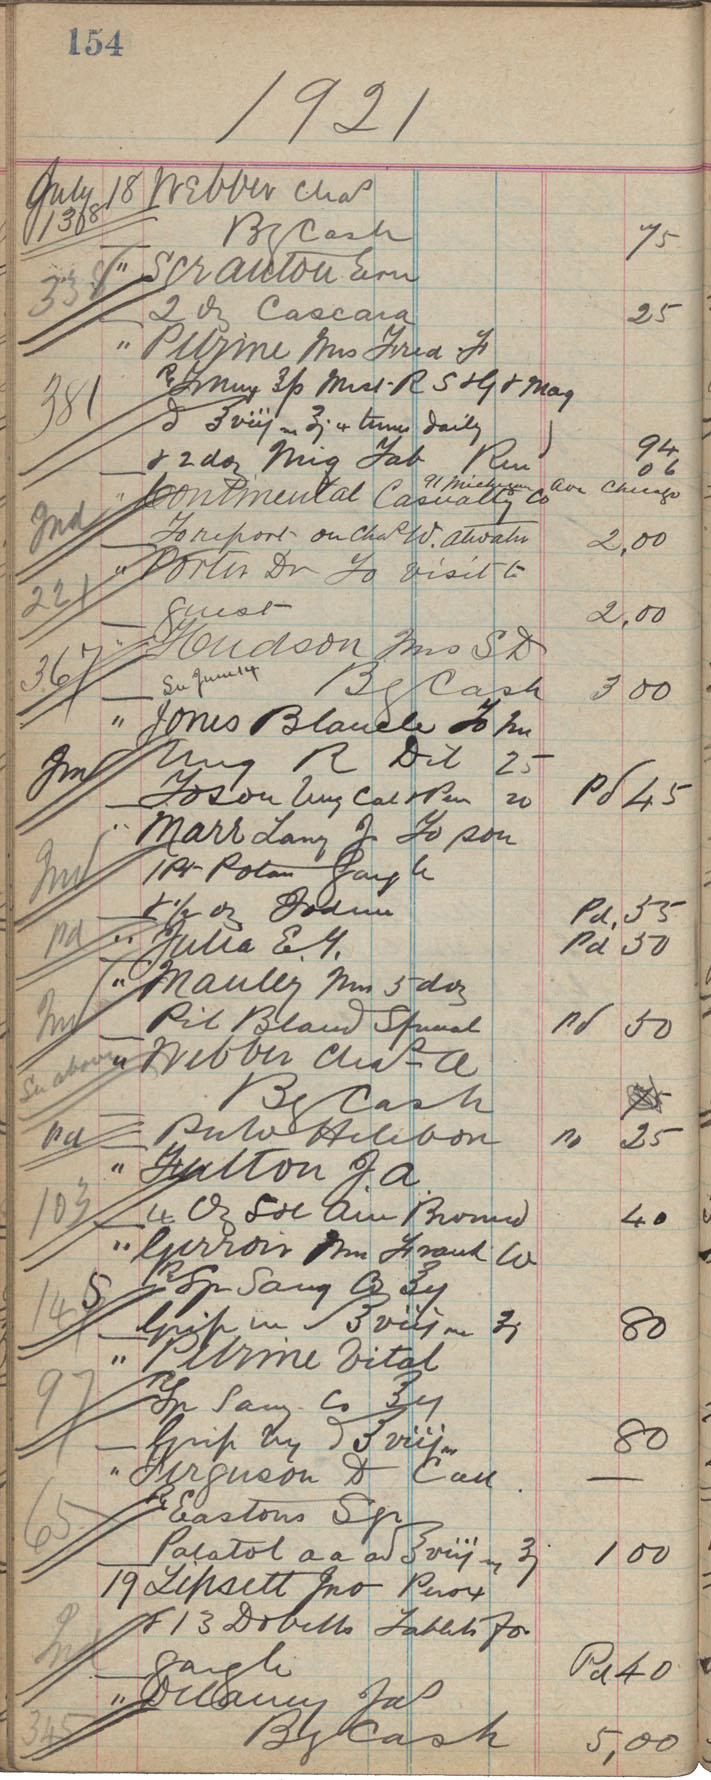 154
1921
July 18 Webber Chas
1308
By Cash 75
338 " Scranton Ern
2 oz Cascara 25
" Perrine Mrs Fred F
381
℥viij ʒj 4 times daily
& 2 doz Mig Tab 94
06
" Continental Casualty Co 91 Michigan Ave Chicago
Ind To report on Chas W. Atwater 2,00
" Porter Dr To visit to
221 guest 2,00
" Hudson Mrs S D
367 See June 14 By Cash 3 00
" Jones Blanche To
Ung R Dil 25
To son Ung Cal & 20 Pd 45
" Marr Lany J To son
Potass Gargle
& ½ oz Iodine Pd. 55
Pd " Julia E. Y. Pd 50
" Manley Mrs 5 doz
Pil Blaud Pd 50
See above " Webber Chas A
By Cash
Pd 25
" Fulton J A
103 4 oz Sol Am Bromid 40
" Mrs Frank W
145 Syr Sang Co ℥ij
℥viij ʒj 80
" Perrine Vital
97 Syr Sang Co ℥ij
℥viij 80
" Ferguson D Call —
65 Eastons Syr
Palatol a a ad ℥viij ʒj 1 00
19 Lipsett Jno Perox
& 13 Dobells Tablets for
gargle Pd 40
" Delaney Jas
345 By Cash 5,00